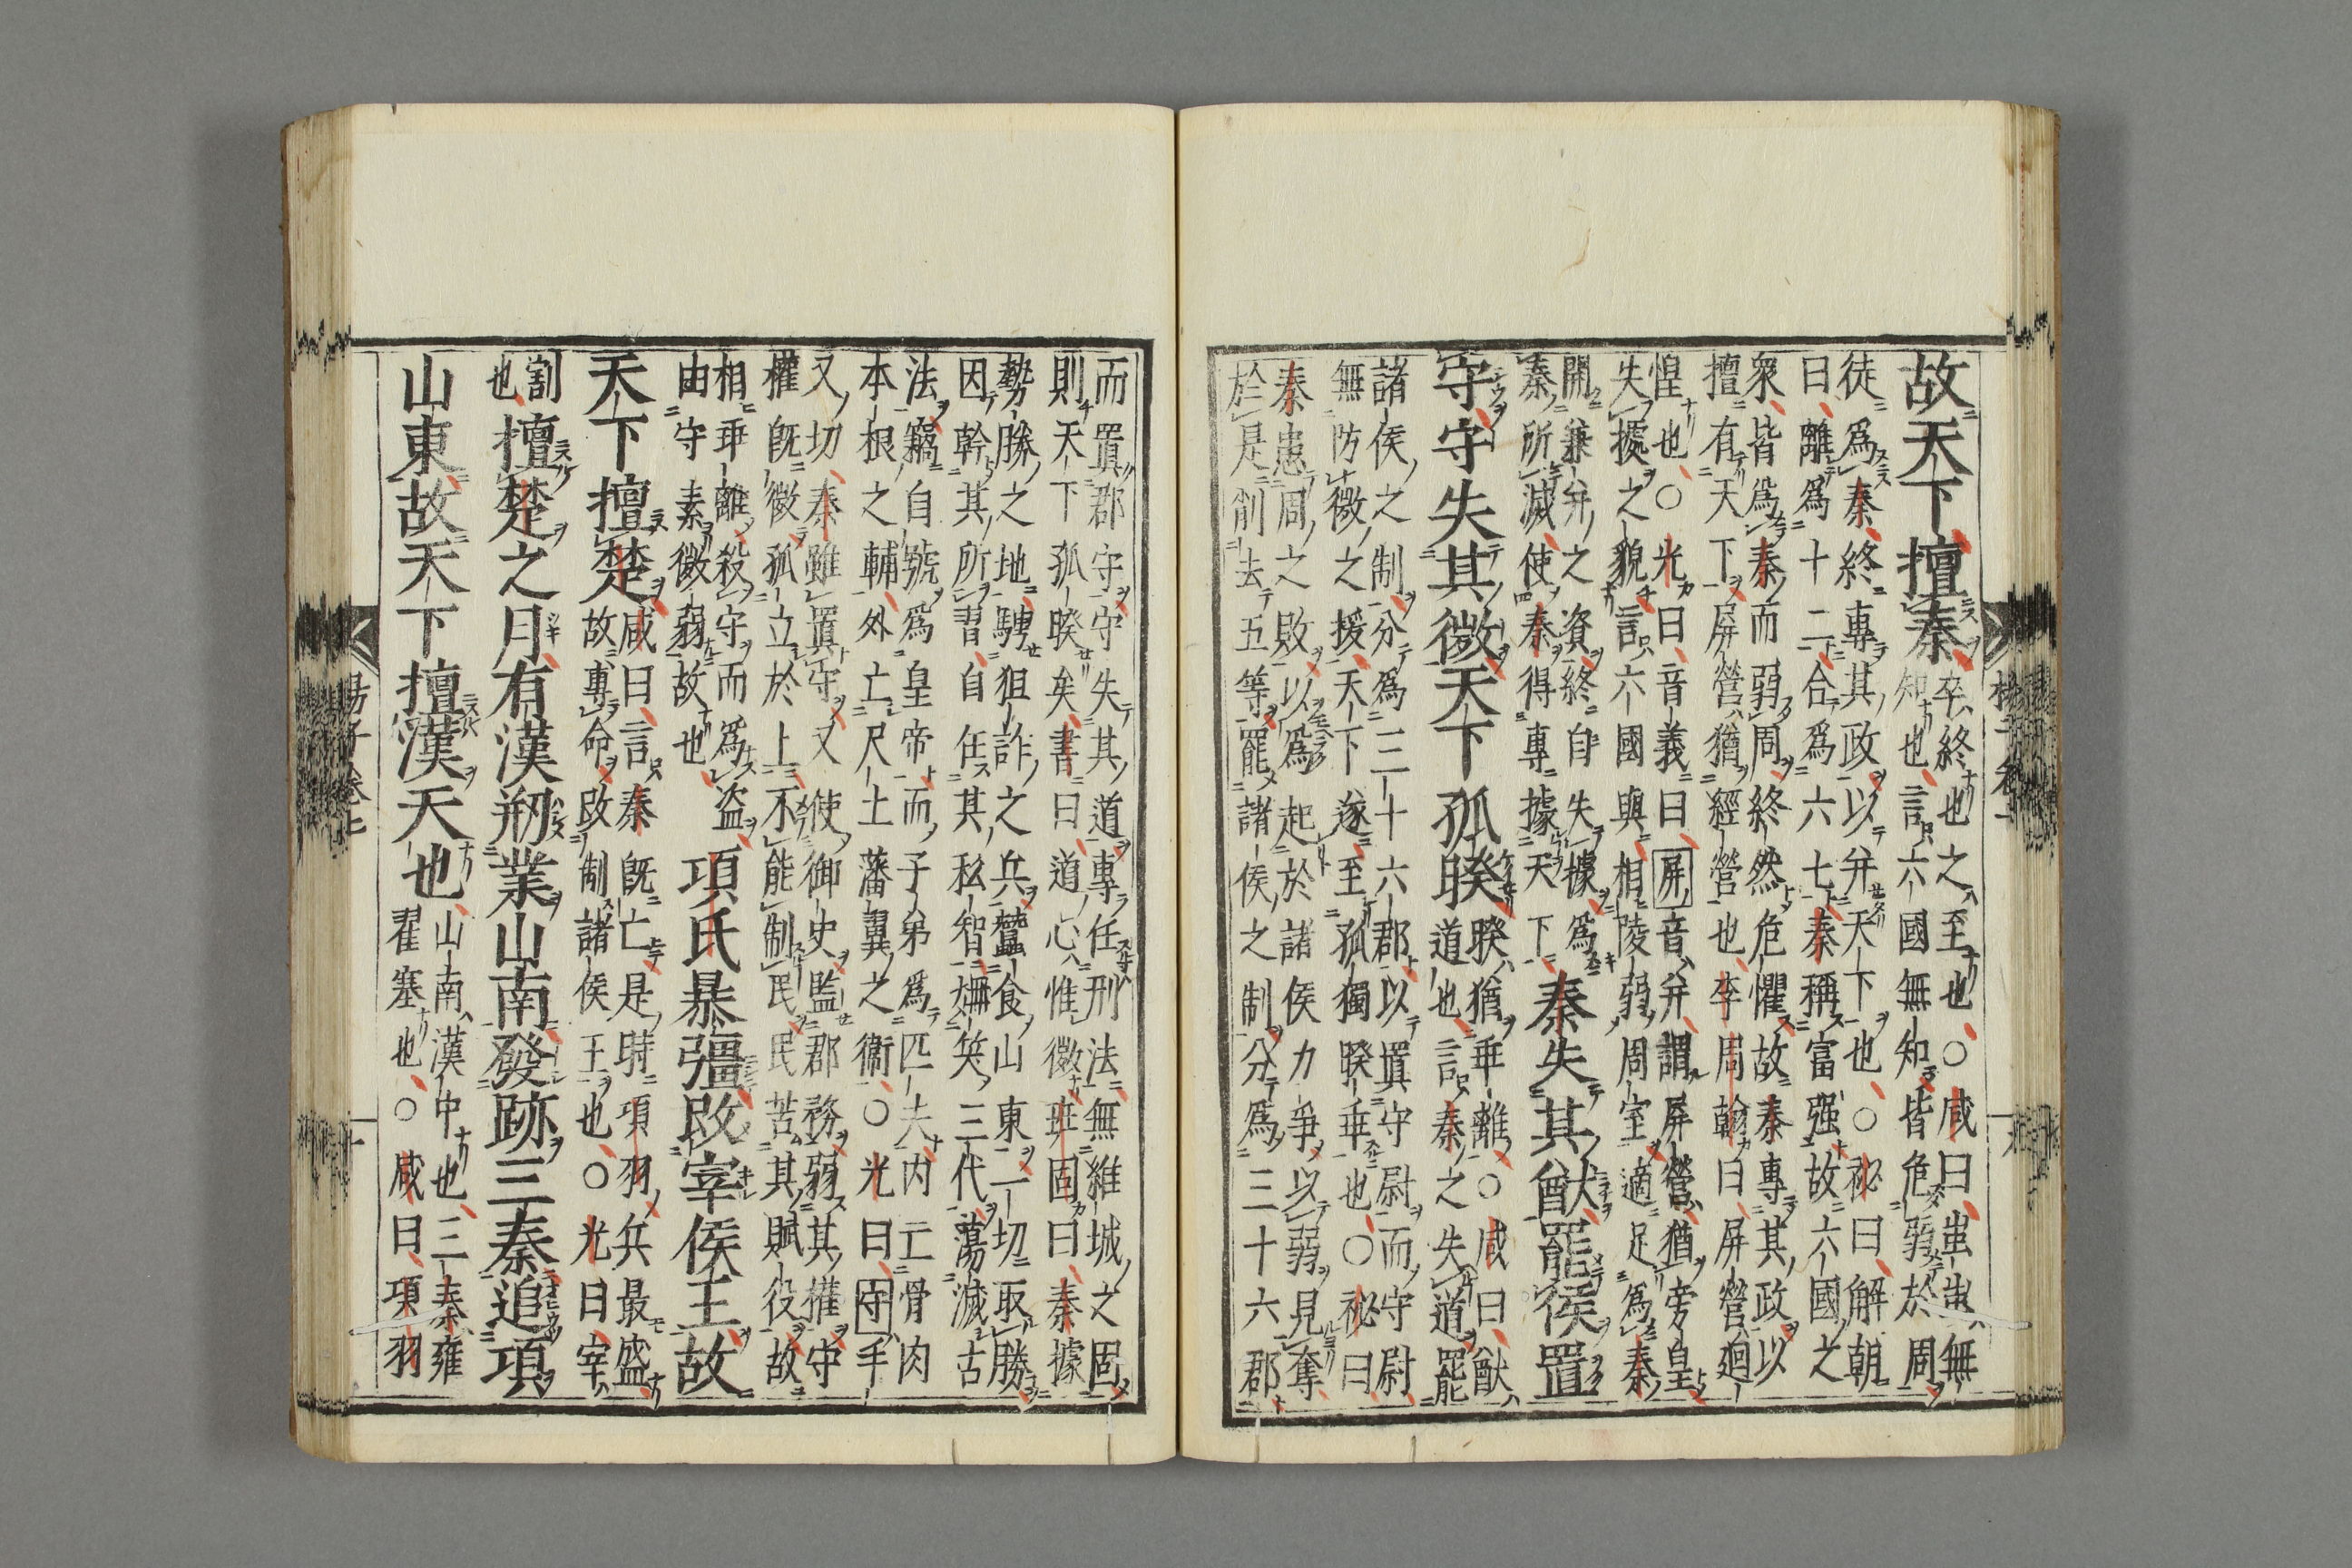 故天下擅秦卒終也之至也○咸曰蚩蚩無
知也言六國無知皆危弱於周
徒爲秦終專其政以并天下也○祕曰解朝
曰離爲十二合爲六七秦稱富强故六國之
衆皆爲秦而弱周終然危懼故秦專其政以
擅有天下屏營猶經營也李周翰曰屏營迴
惶也○光曰音義曰屏音并謂屏營猶旁皇
失據之貌言六國與相陵弱周室適足爲秦
開兼并之資終自失據爲
秦所滅使秦得專據天下
秦失其猷罷侯置
守守失其微天下孤睽睽猶乖離○咸曰猷
道也言秦之失道罷
諸侯之制分爲三十六郡以置守尉而守尉
無防微之援天下遂至孤獨睽乖也○祕曰
秦患周之敗以爲起於諸侯力爭以弱見奪
於是削去五等罷諸侯之制分爲三十六郡
而置郡守守失其道專任刑法無維城之固
則天下孤睽矣書曰道心惟微班固曰秦據
勢勝之地騁狙詐之兵蠶食山東一切取勝
因矜其所習自任其私智姍笑三代蕩滅古
法竊自號爲皇帝而子弟爲匹夫內亡骨肉
本根之輔外亡尺土藩翼之衞○光曰守手
又切秦雖置守又使御史監郡務弱其權守
權旣微孤立於上不能制民民苦其賦役故
相乖離殺守而爲盜
由守素微弱故也
項氏暴彊改宰侯王故
天下擅楚咸曰言秦旣亡是時項羽兵最盛
故專命改制諸侯王也○光曰宰
割
也擅楚之月有漢刱業山南發跡三秦追項
山東故天下擅漢天也山南漢中也三秦雍
翟塞也○咸曰項羽